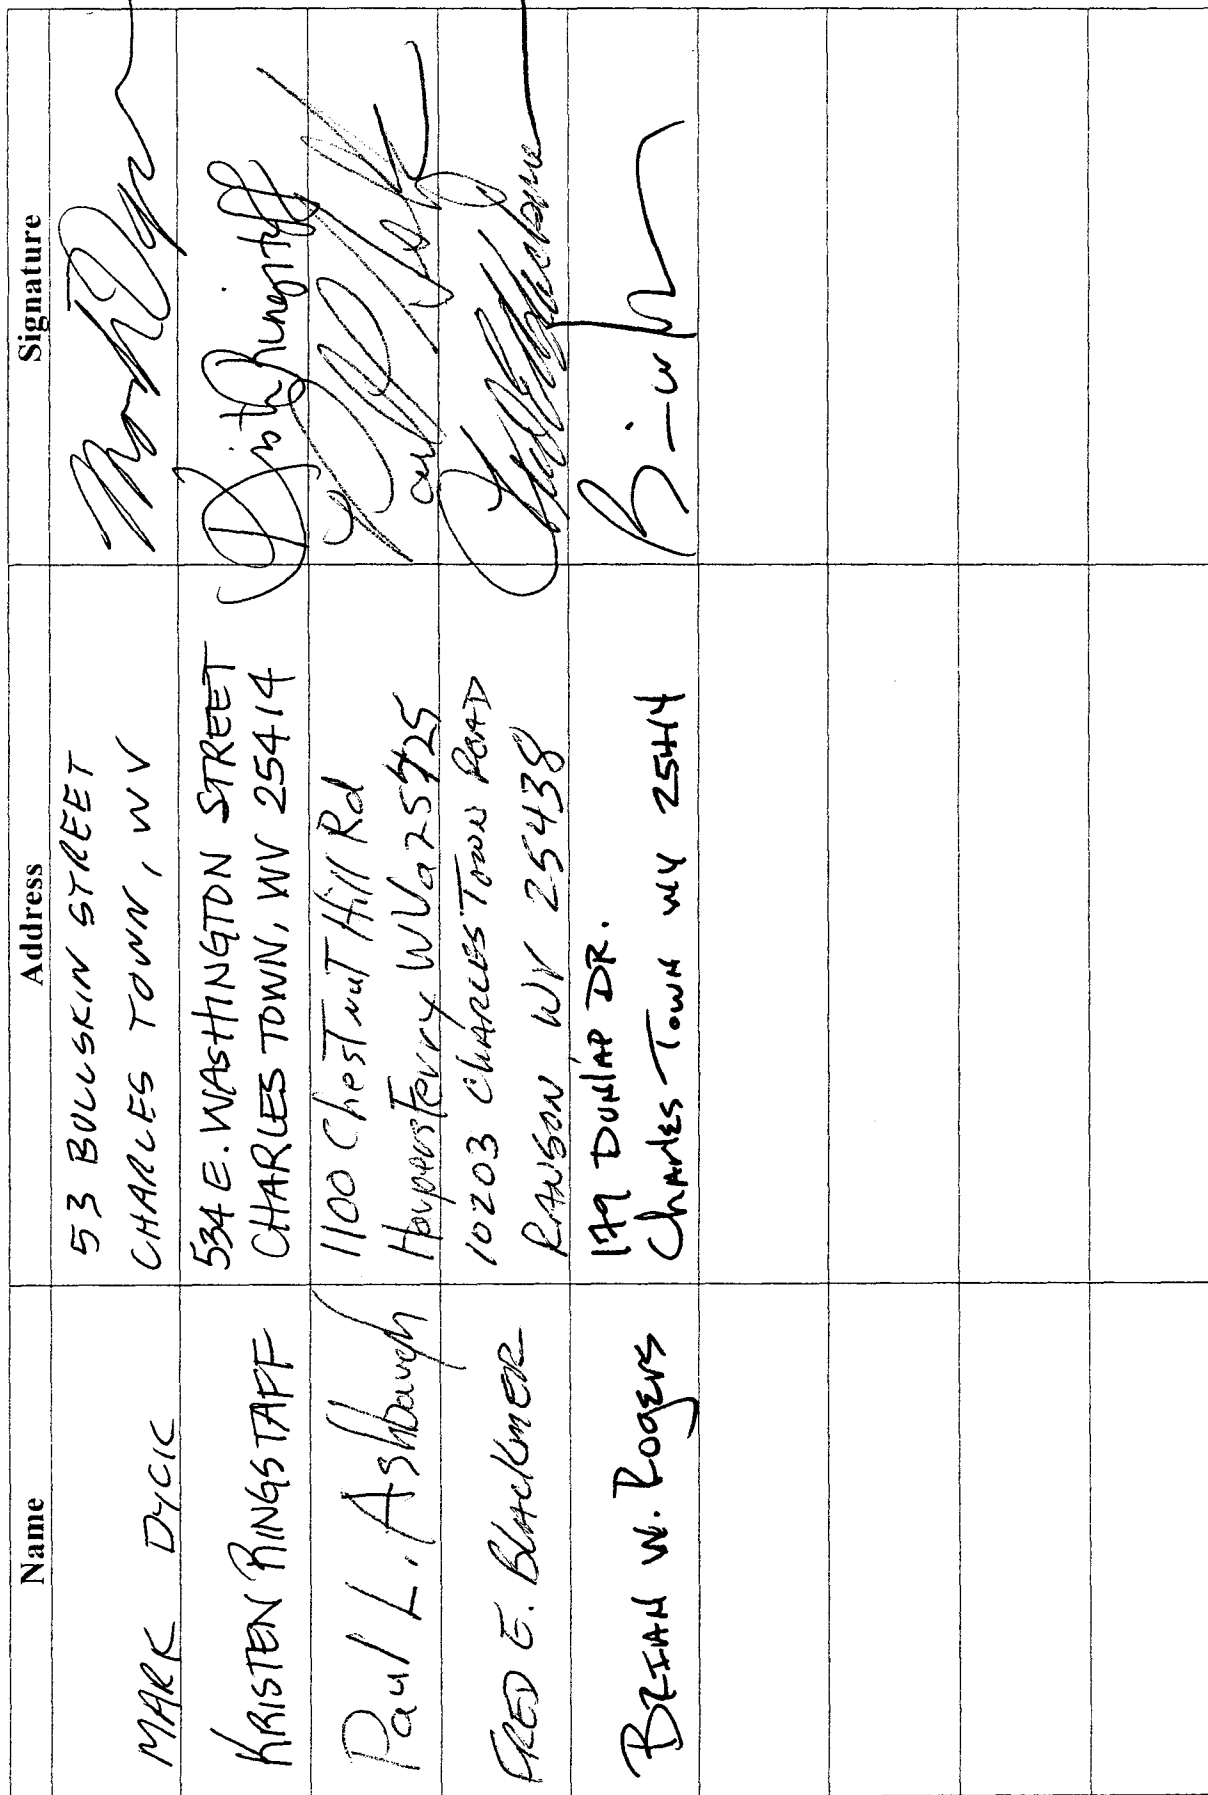 Name Address Signature
MARK DYCK
53 BULLSKIN STREET
CHARLES TOWN, WV
KRISTEN RINGSTAFF
534 E. WASHINGTON STREET
CHARLES TOWN, WV 25414
Kristen Ringstaff
Paul L. Ashbaugh
1100 Chestnut Hill Rd
Harpers Ferry WVa 25425
FRED E. BlackmER
10203 CHARLES TOWN ROAD
RANSON WV 25438
BRIAN W. Rogers
179 DUNLAP DR.
Charles Town WV 25414